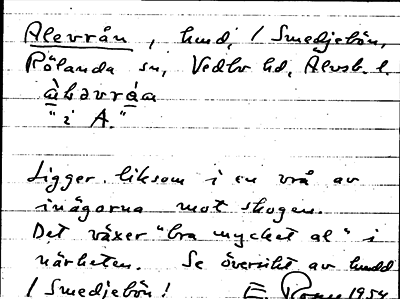 Alevrån, hmd, i Smedjebön,
Rölanda sn, Vedbo hd, Älvsb. l.
àlavráa
"i A."
Ligger liksom i en vrå av
inägorna mot skogen.
Det växer "bra mycket al" i
närheten. Se översikt av hmdd
i Smedjebön! E 1954